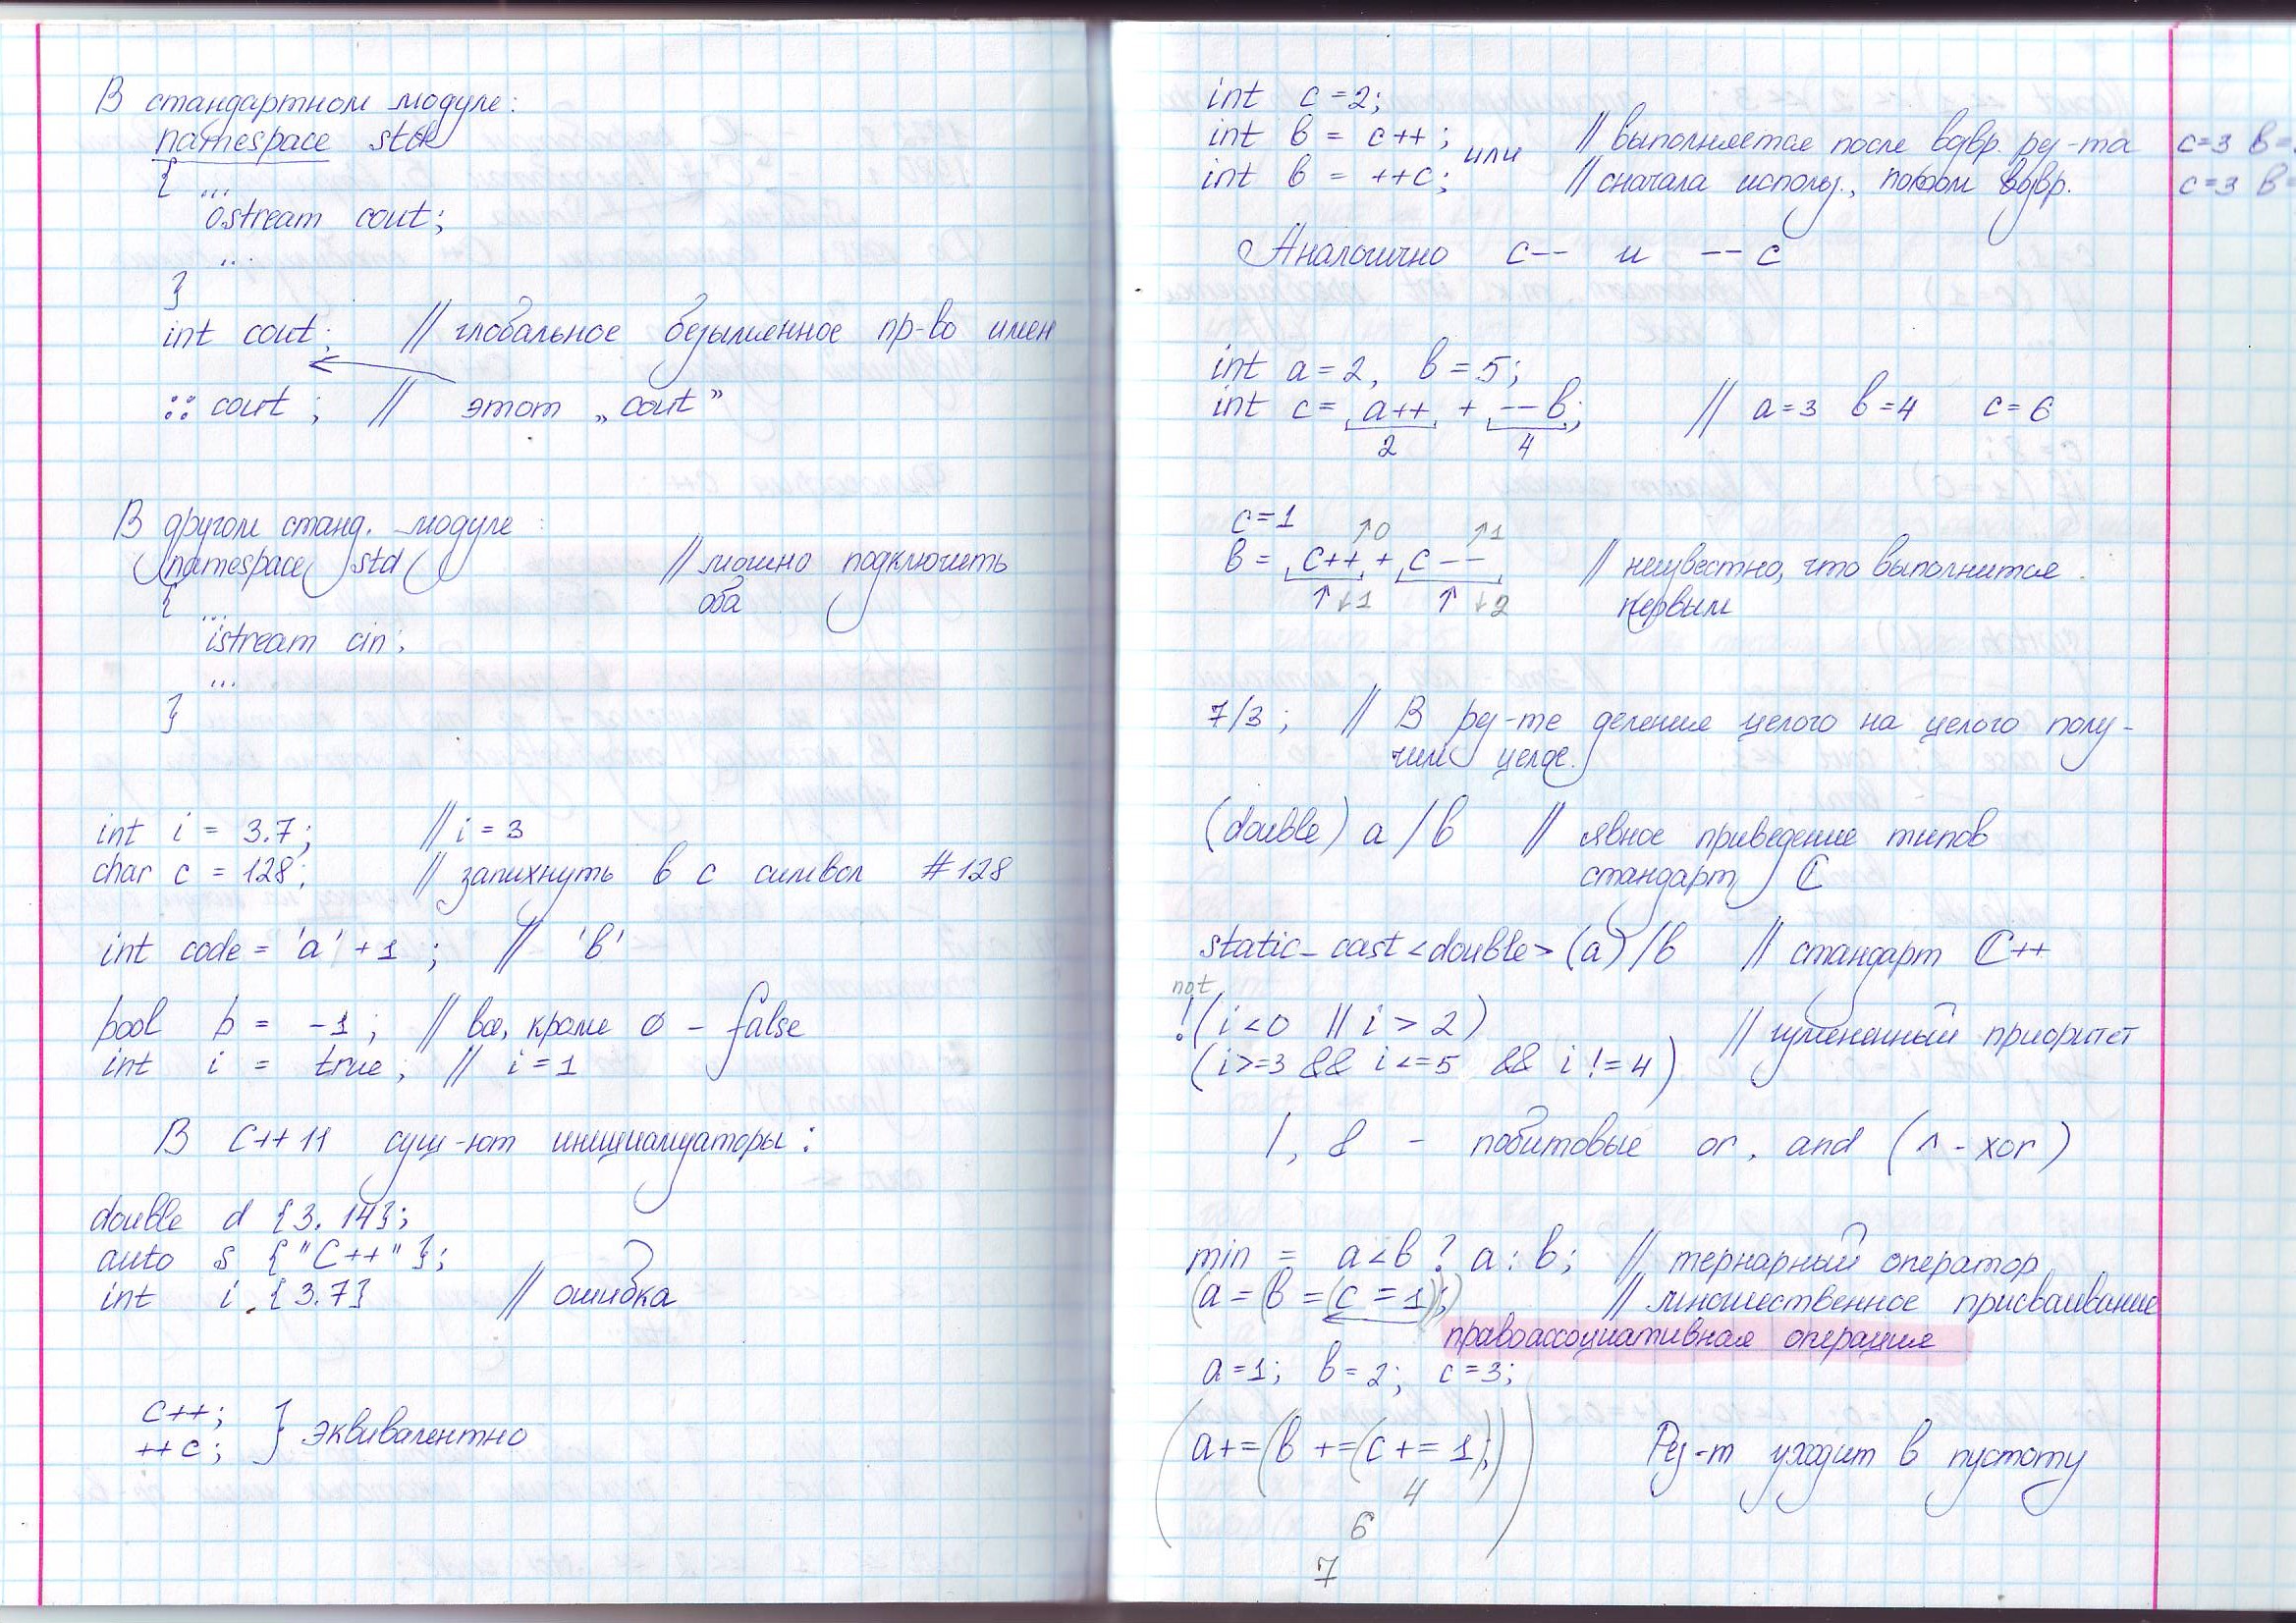 В стандартном модуле:
namespace std
{ ...
ostream cout;
...
}
int cout; // глобальное безыменное пр-во имен
:: cout ; // этот „cout”
В другом станд. модуле :
namespace std // можно подключить
{ ... оба
istream cin;
...
}
int i = 3.7; // i = 3
char c = 128; // запихнуть в c символ #128
int code = 'a' + 1 ; // 'b'
bool b = -1 ; // все, кроме 0 - false
int i = true; // i = 1
В C++ 11 сущ-ют инициализаторы:
double d {3.14};
auto s {"C++"};
int i {3.7} // ошибка
c++; } эквивалентно
++c;
int c = 2;
int b = c++ ; или // выполняется после возвр. рез-та c=3 b=
int b = ++c; // сначала использ., потом возвр. c=3 b=
Аналогично c-- и --c
int a = 2, b = 5;
int c = a++ + --b; // a=3 b=4 c=6
2 4
c=1 ↑0 ↑1
b = c++ + c-- // неизвестно, что выполнится
↑ ↓1 ↑ ↓2 первым
7/3 ; // В рез-те деления целого на целого полу-
чим целое.
(double) a / b // явное приведение типов
стандарт C
static_cast<double>(a)/b // стандарт C++
not
!(i<0 || i > 2) // изменённый приоритет
(i>=3 && i<=5 && i != 4)
|, & - побитовые or, and (^ - xor)
min = a<b ? a : b; // тернарный оператор
(a = (b = (c = 1))); // множественное присваивание
правоассоциативная операция
a=1; b=2; c=3;
(a+=(b +=(c += 1;))) Рез-т уходит в пустоту
4
6
7